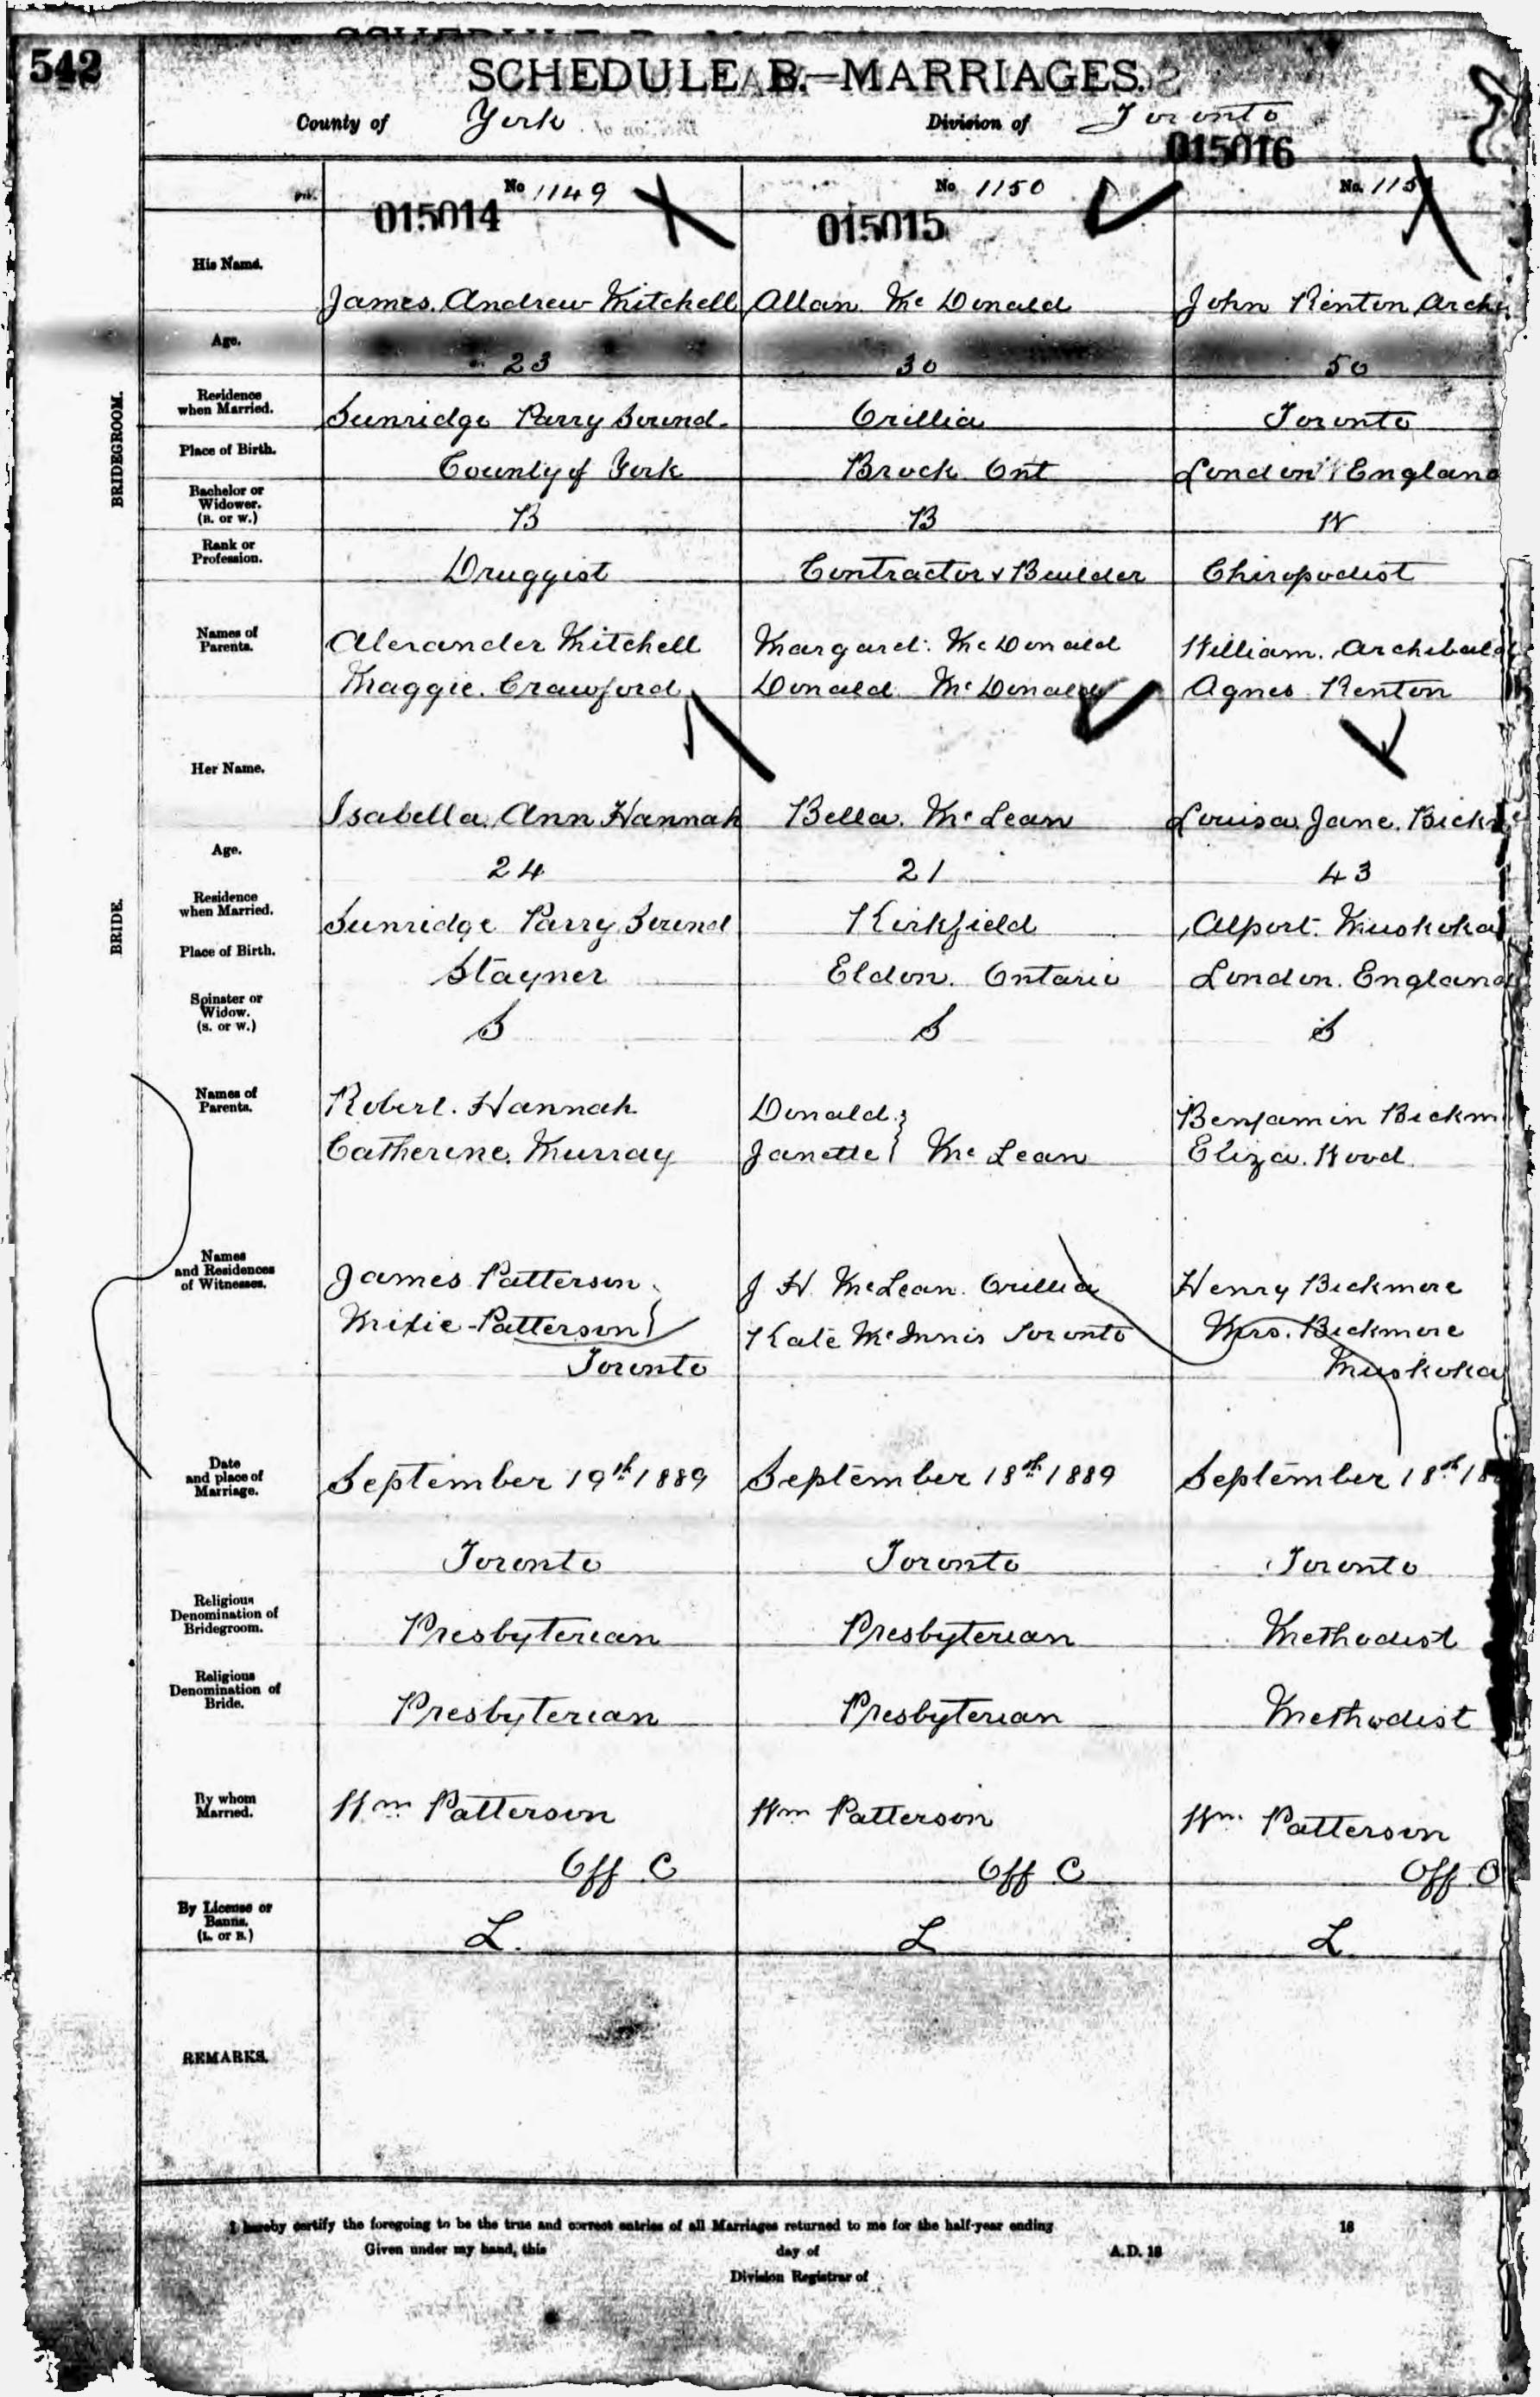 542
SCHEDULE B.—MARRIAGES.
County of York Division of Toronto
015016
No 1149 No 1150 No. 115
015014 015015
His Name. James Andrew Mitchell Allan McDonald John Renton Archi
BRIDEGROOM.
Age. 23 30 50
Residence when Married. Sunridge Parry Sound Orillia Toronto
Place of Birth. County of York Brock Ont London England
Bachelor or Widower. (B. or W.) B B W
Rank or Profession. Druggist Contractor & Builder Chiropodist
Names of Parents. Alexander Mitchell Margaret McDonald William Archibald
Maggie Crawford Donald McDonald Agnes Renton
Her Name. Isabella Ann Hannah Bella McLean Louisa Jane Bickm
BRIDE.
Age. 24 21 43
Residence when Married. Sunridge Parry Sound Kirkfield Alport Muskoka
Place of Birth. Stayner Eldon Ontario London England
Spinster or Widow. (S. or W.) S S S
Names of Parents. Robert Hannah Donald Benjamin Bickm
Catherine Murray Janette McLean Eliza Wood
Names and Residences of Witnesses. James Patterson J H McLean Orillia Henry Bickmore
Patterson Kate McInnis Toronto Mrs. Bickmore
Toronto Muskoka
Date and place of Marriage. September 19th 1889 September 18th 1889 September 18th 18
Toronto Toronto Toronto
Religious Denomination of Bridegroom. Presbyterian Presbyterian Methodist
Religious Denomination of Bride. Presbyterian Presbyterian Methodist
By whom Married. Wm Patterson Wm Patterson Wm Patterson
Off C Off C Off C
By License or Banns. (L. or B.) L. L L
REMARKS.
I hereby certify the foregoing to be the true and correct entries of all Marriages returned to me for the half-year ending 18
Given under my hand, this day of A.D. 18
Division Registrar of